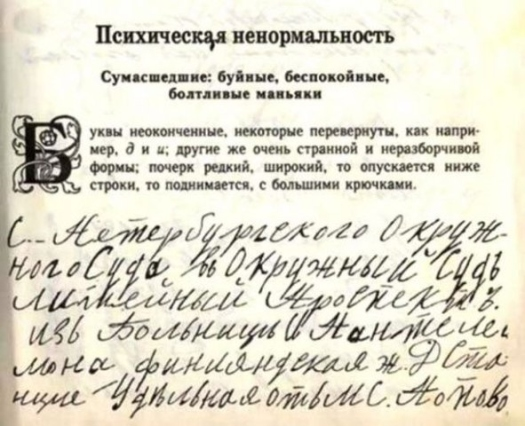 Психическая ненормальность
Сумасшедшие: буйные, беспокойные,
болтливые маньяки
Буквы неоконченные, некоторые перевернуты, как напри-
мер, д и и; другие же очень странной и неразборчивой
формы; почерк редкий, широкий, то опускается ниже
строки, то поднимается, с большими крючками.
С... Петербургского Окруж-
ного Суда въ Окружный Судъ
Литейный Проспектъ.
изъ Больницы Пантелей
мона финляндская ж. Д Ста
нцие Удѣльная отъ М. С. Попово